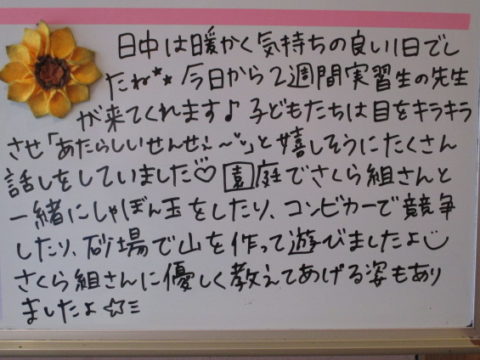 日中は暖かく気持ちの良い1日でし
たね★★今日から2週間実習生の先生
が来てくれます♪子どもたちは目をキラキラ
させ「あたらしいせんせぇ〜♡」と嬉しそうにたくさん
話しをしていました♡園庭でさくら組さんと
一緒にしゃぼん玉をしたり、コンビカーで競争
したり、砂場で山を作って遊びましたよ
さくら組さんに優しく教えてあげる姿もあり
ましたよ☆ミ